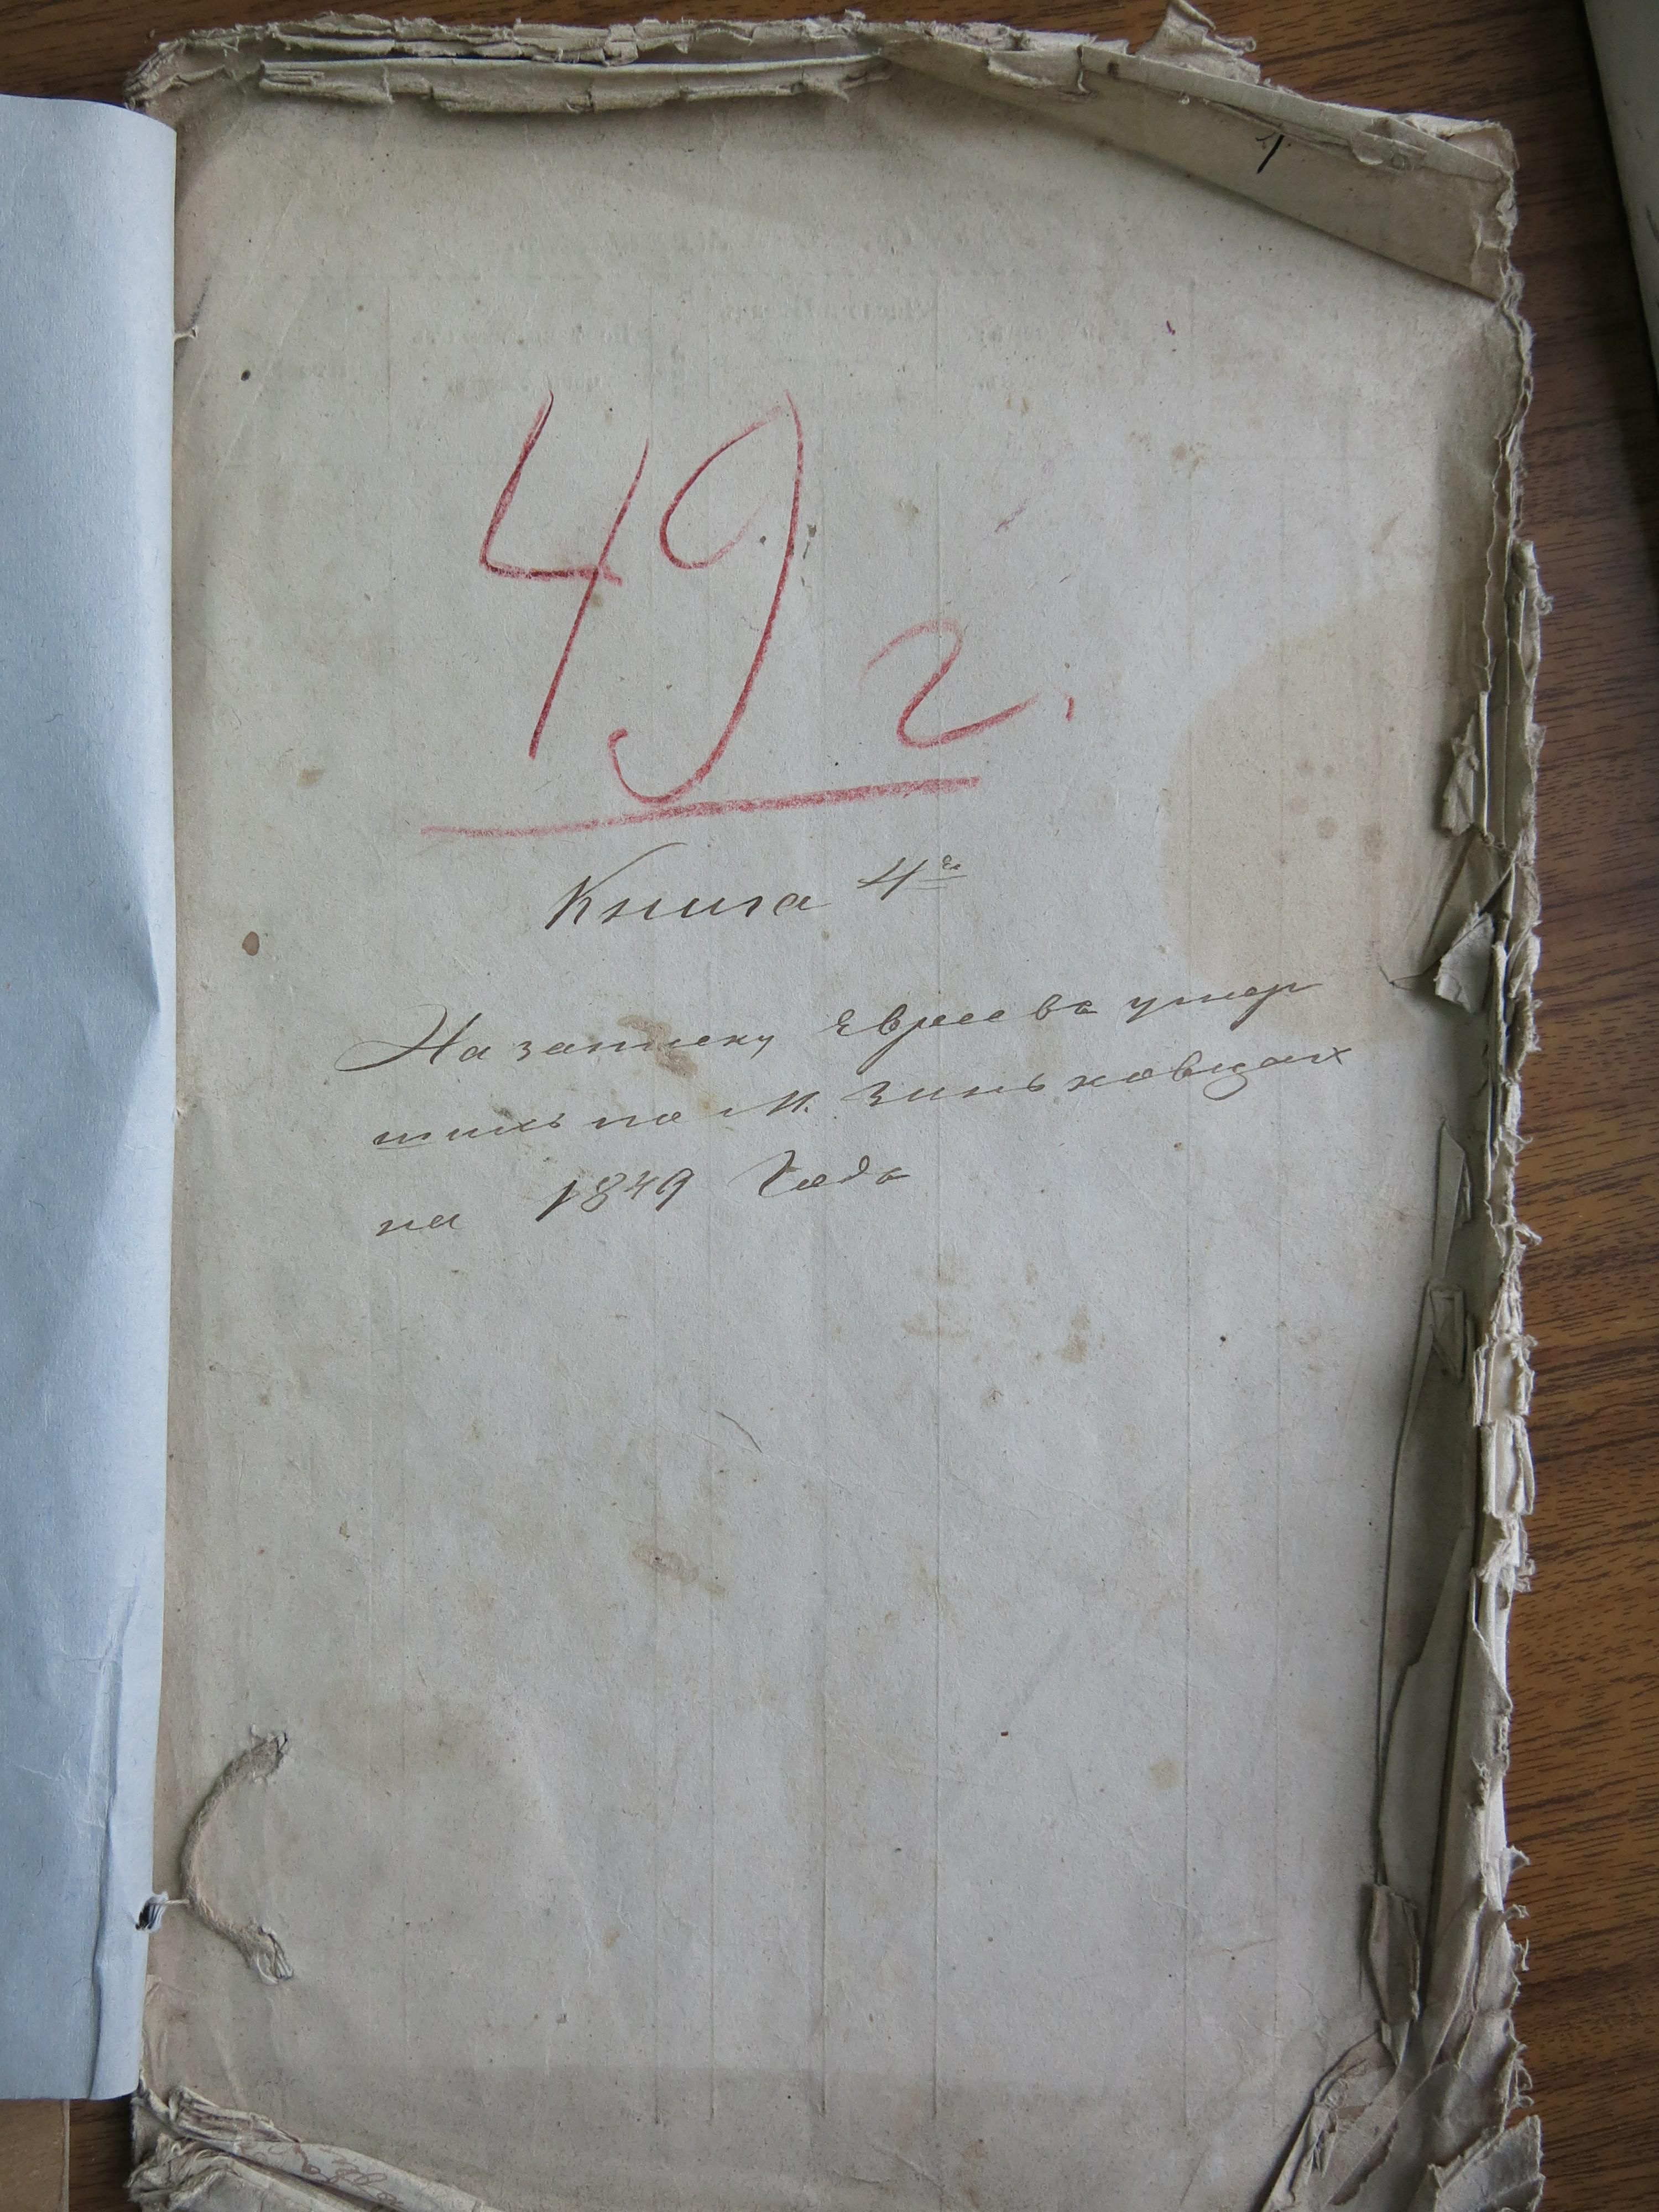 1.
49 г.
Книга 4я
На записку Евреевъ умер
шихъ по М. Зиньковцах
на 1849 Годъ